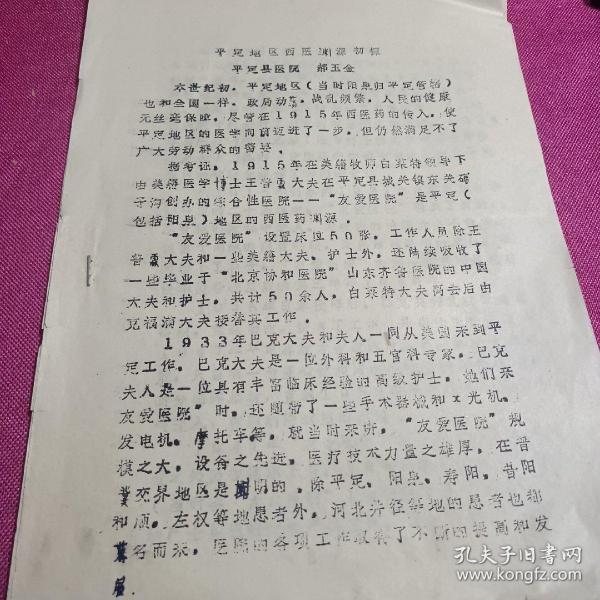 平定地区西医渊源初探
平定县医院 郝玉金
本世纪初，平定地区（当时阳泉归平定管辖）
也和全国一样，政局动荡，战乱频繁，人民的健康
无丝毫保障，尽管在1915年西医药的传入，使
平定地区的医学向前迈进了一步，但仍然满足不了
广大劳动群众的需要。
据考证，1915年在美籍牧师白莱特领导下
由美籍医学博士王普霖大夫在平定县城关镇东关
子沟创办的综合性医院——“友爱医院”是平定（
包括阳泉）地区的西医药渊源。
“友爱医院”设置床位50张，工作人员除王
普霖大夫和一些美籍大夫、护士外，还陆续吸收了
一些毕业于“北京协和医院”山东齐鲁医院的中国
大夫和护士，共计50余人，白莱特大夫离去后由
克福满大夫接替其工作。
1933年巴克大夫和夫人一同从美国来到平
定工作。巴克大夫是一位外科和五官科专家，巴克
夫人是一位具有丰富临床经验的高级护士，她们来
友爱医院”时，还随带了一些手术器械和x光机、
发电机、摩托车等，就当时来讲，“友爱医院”规
模之大，设备之先进，医疗技术力量之雄厚，在晋
冀交界地区是闻明的，除平定、阳泉、寿阳，昔阳
和顺，左权等地患者外，河北井径等地的患者也都
慕名而来，医院的各项工作取得了不断的提高和发
展．
孔夫子旧书网
www.kongfz.com